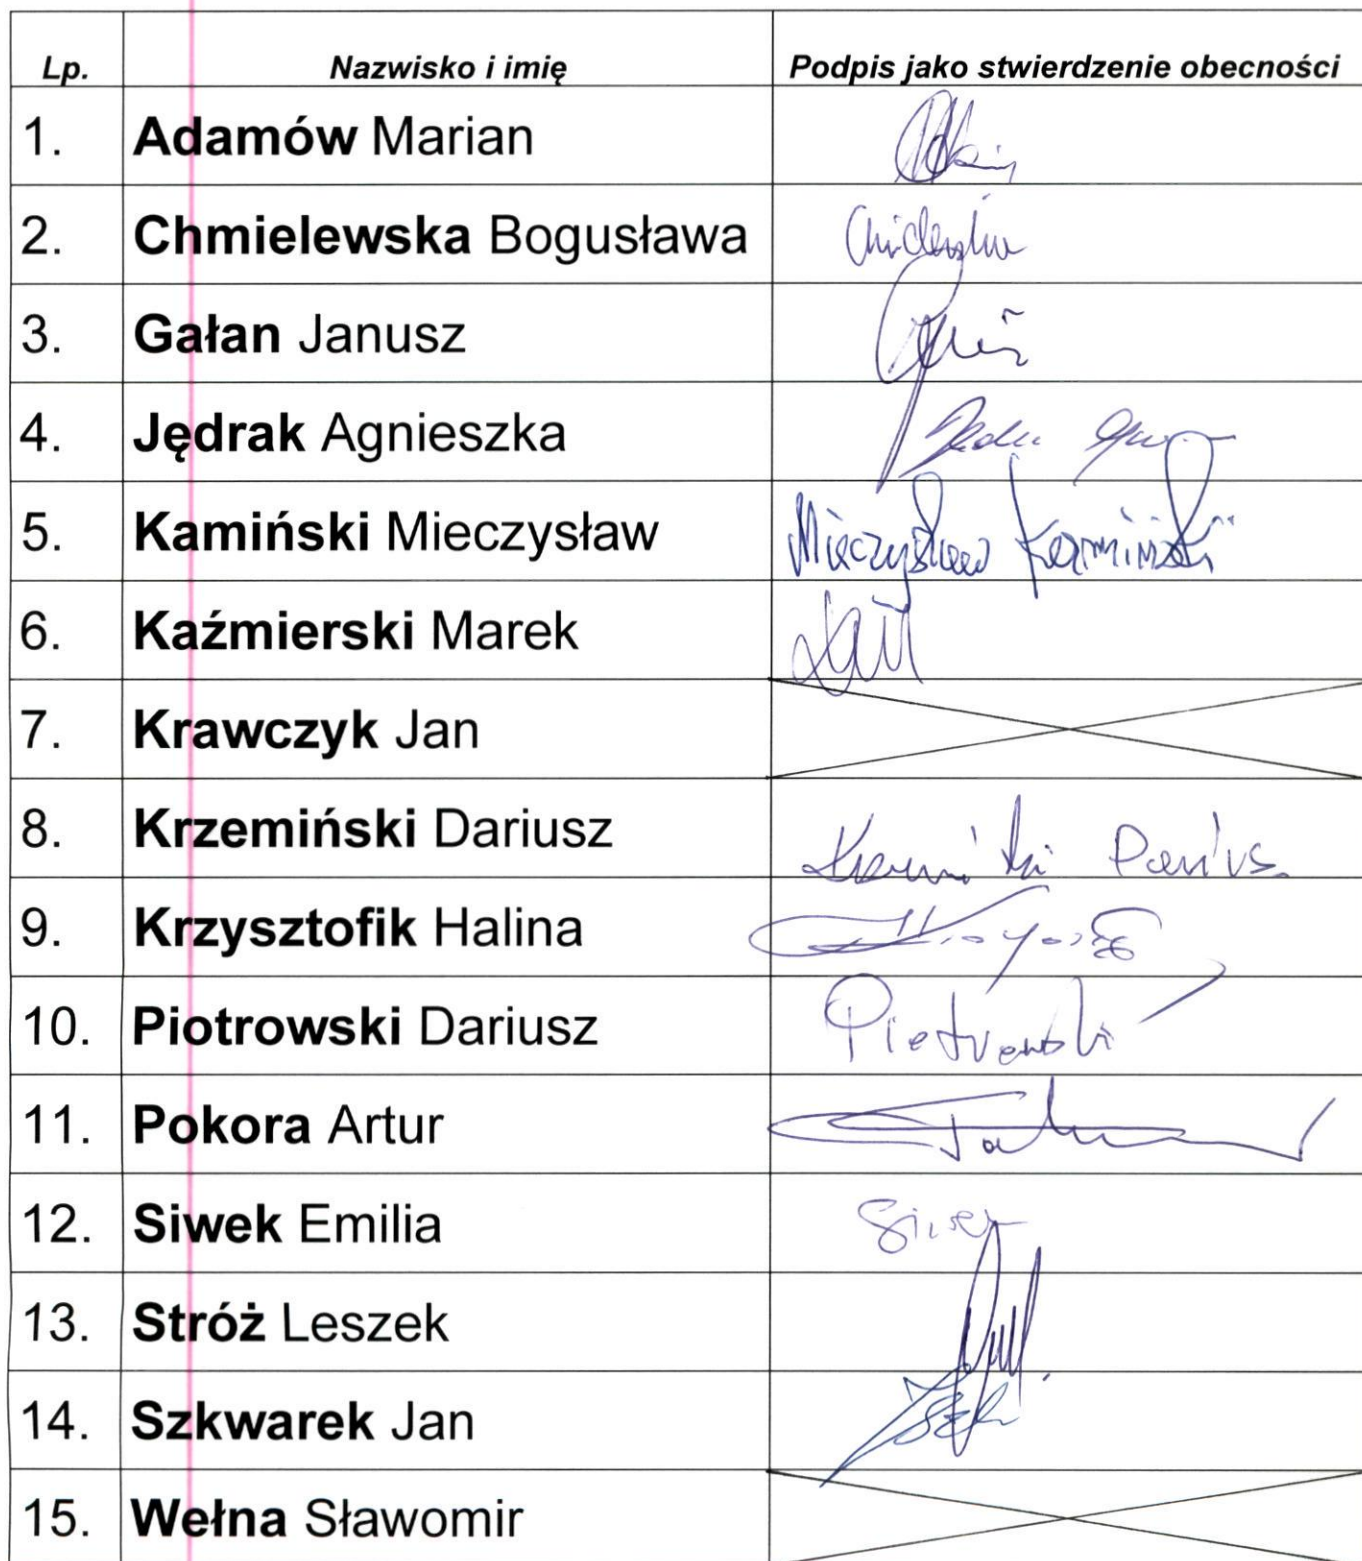 Lp. Nazwisko i imię Podpis jako stwierdzenie obecności
1. Adamów Marian
2. Chmielewska Bogusława
3. Gałan Janusz
4. Jędrak Agnieszka
5. Kamiński Mieczysław Mieczysław Kamiński
6. Kaźmierski Marek
7. Krawczyk Jan
8. Krzemiński Dariusz
9. Krzysztofik Halina
10. Piotrowski Dariusz Piotrowski
11. Pokora Artur
12. Siwek Emilia Siwek
13. Stróż Leszek
14. Szkwarek Jan
15. Wełna Sławomir